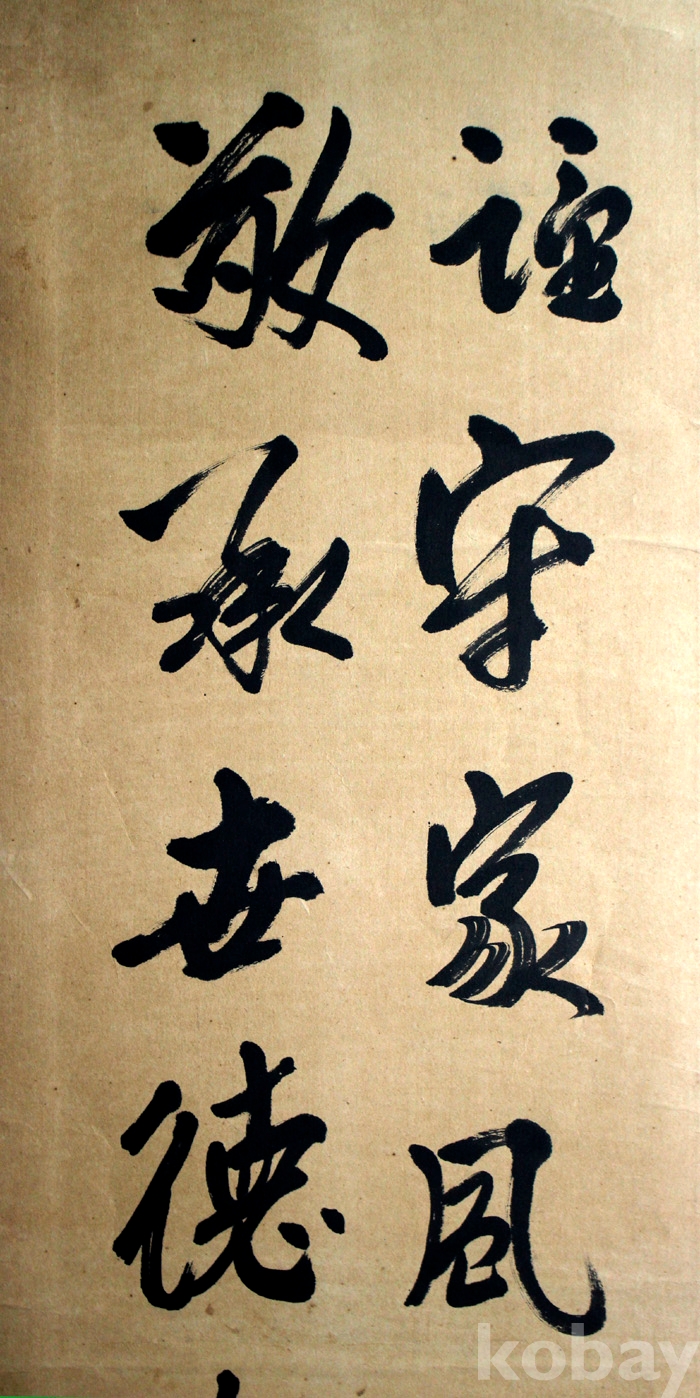 謹守家風
敬承世德
kobay